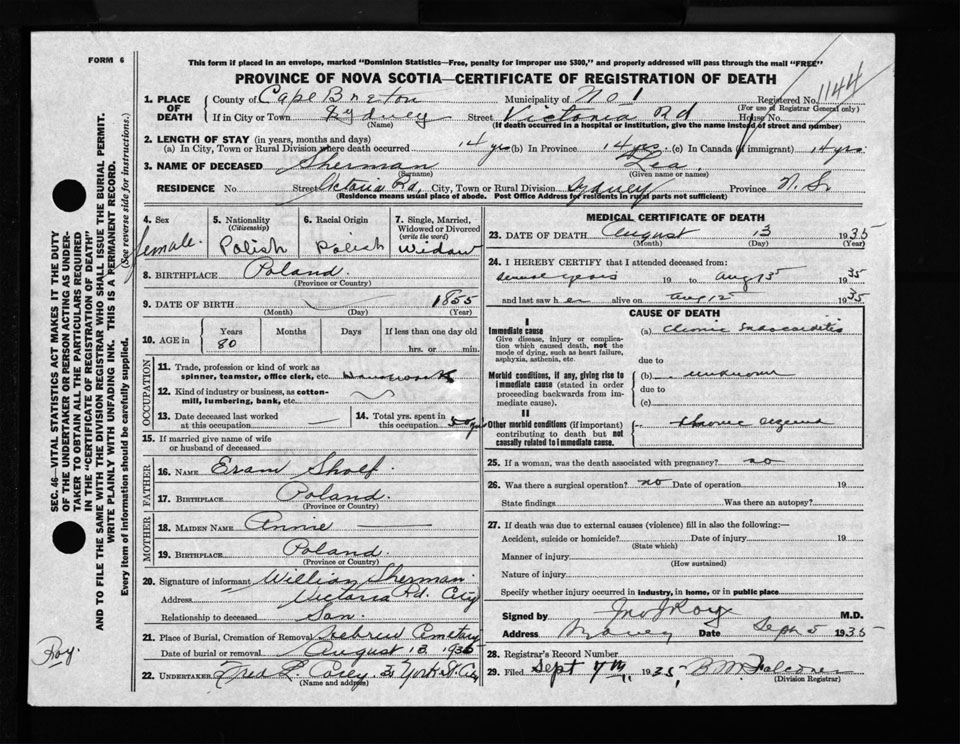 FORM 6
This form if placed in an envelope, marked "Dominion Statistics—Free, penalty for improper use $300," and properly addressed will pass through the mail "FREE"
PROVINCE OF NOVA SCOTIA—CERTIFICATE OF REGISTRATION OF DEATH
1144
1. PLACE OF DEATH County of Cape Breton Municipality of No 1 Registered No.
(For use of Registrar General only)
If in City or Town Sydney Street Victoria Rd House No.
(Name) (If death occurred in a hospital or institution, give the name instead of street and number)
2. LENGTH OF STAY (in years, months and days)
(a) In City, Town or Rural Division where death occurred 14 yrs (b) In Province 14 yrs. (c) In Canada (if immigrant) 14 yrs.
3. NAME OF DECEASED Sherman Lea
(Surname) (Given name or names)
RESIDENCE No. Street Victoria Rd, City, Town or Rural Division Sydney Province N. S.
(Residence means usual place of abode. Post Office Address for residents in rural parts not sufficient)
4. Sex female.
5. Nationality (Citizenship) Polish
6. Racial Origin Polish
7. Single, Married, Widowed or Divorced (write the word) Widow
8. BIRTHPLACE Poland.
(Province or Country)
9. DATE OF BIRTH 1855
(Month) (Day) (Year)
10. AGE in Years Months Days If less than one day old
80 hrs. or min.
OCCUPATION
11. Trade, profession or kind of work as spinner, teamster, office clerk, etc. Housework
12. Kind of industry or business, as cotton-mill, lumbering, bank, etc.
13. Date deceased last worked at this occupation
14. Total yrs. spent in this occupation
15. If married give name of wife or husband of deceased
FATHER
16. NAME
17. BIRTHPLACE Poland.
(Province or Country)
MOTHER
18. MAIDEN NAME Annie
19. BIRTHPLACE Poland.
(Province or Country)
20. Signature of informant William Sherman.
Address Victoria Rd. City
Relationship to deceased Son.
21. Place of Burial, Cremation or Removal Hebrew Cemetary
Date of burial or removal August 13 1935
22. UNDERTAKER Fred L. Curry. York St. City
(Name and address)
MEDICAL CERTIFICATE OF DEATH
23. DATE OF DEATH August 13 1935
(Month) (Day) (Year)
24. I HEREBY CERTIFY that I attended deceased from:
several years 19 to Aug 13 1935
and last saw her alive on Aug 12 1935
CAUSE OF DEATH
I
Immediate cause
Give disease, injury or complication which caused death, not the mode of dying, such as heart failure, asphyxia, asthenia, etc.
(a) Chronic Endocarditis
due to
Morbid conditions, if any, giving rise to immediate cause (stated in order proceeding backwards from immediate cause).
(b) unknown
due to
(c)
II
Other morbid conditions (if important) contributing to death but not causally related to immediate cause.
chronic eczema
25. If a woman, was the death associated with pregnancy? no
26. Was there a surgical operation? no Date of operation 19
State findings Was there an autopsy?
27. If death was due to external causes (violence) fill in also the following:—
Accident, suicide or homicide? Date of injury 19
(State which)
Manner of injury
(How sustained)
Nature of injury
Specify whether injury occurred in industry, in home, or in public place
Signed by Jno J Roy M.D.
Address Date Sept 5 1935
28. Registrar's Record Number
29. Filed Sept 7th 1935, B. M. Falconer
(Division Registrar)
SEC. 46—VITAL STATISTICS ACT MAKES IT THE DUTY OF THE UNDERTAKER OR PERSON ACTING AS UNDERTAKER TO OBTAIN ALL THE PARTICULARS REQUIRED IN THE "CERTIFICATE OF REGISTRATION OF DEATH" AND TO FILE THE SAME WITH THE DIVISION REGISTRAR WHO SHALL ISSUE THE BURIAL PERMIT.
WRITE PLAINLY WITH UNFADING INK. THIS IS A PERMANENT RECORD.
Every item of information should be carefully supplied. (See reverse side for instructions.)
Roy.